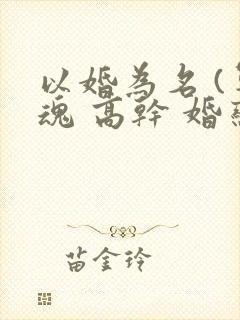 以婚為名(
魂 高幹 婚
苗金玲